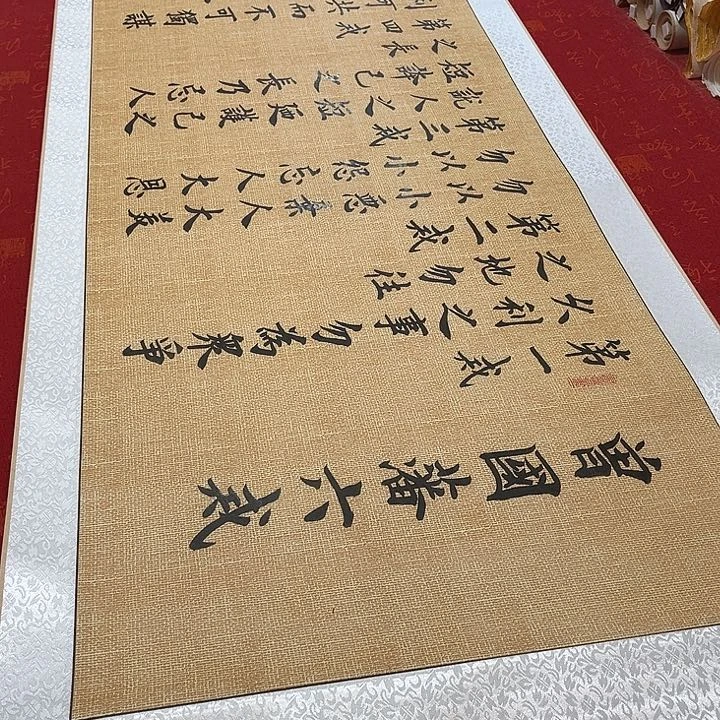 曾國藩六戒
第一戒
久利之事勿為眾爭
之地勿往
第二戒
勿以小惡棄人大美
勿以小怨忘人大恩
第三戒
說人之短更護己之
短誇己之長乃忌人
之長
第四戒
利可共而不可獨謀